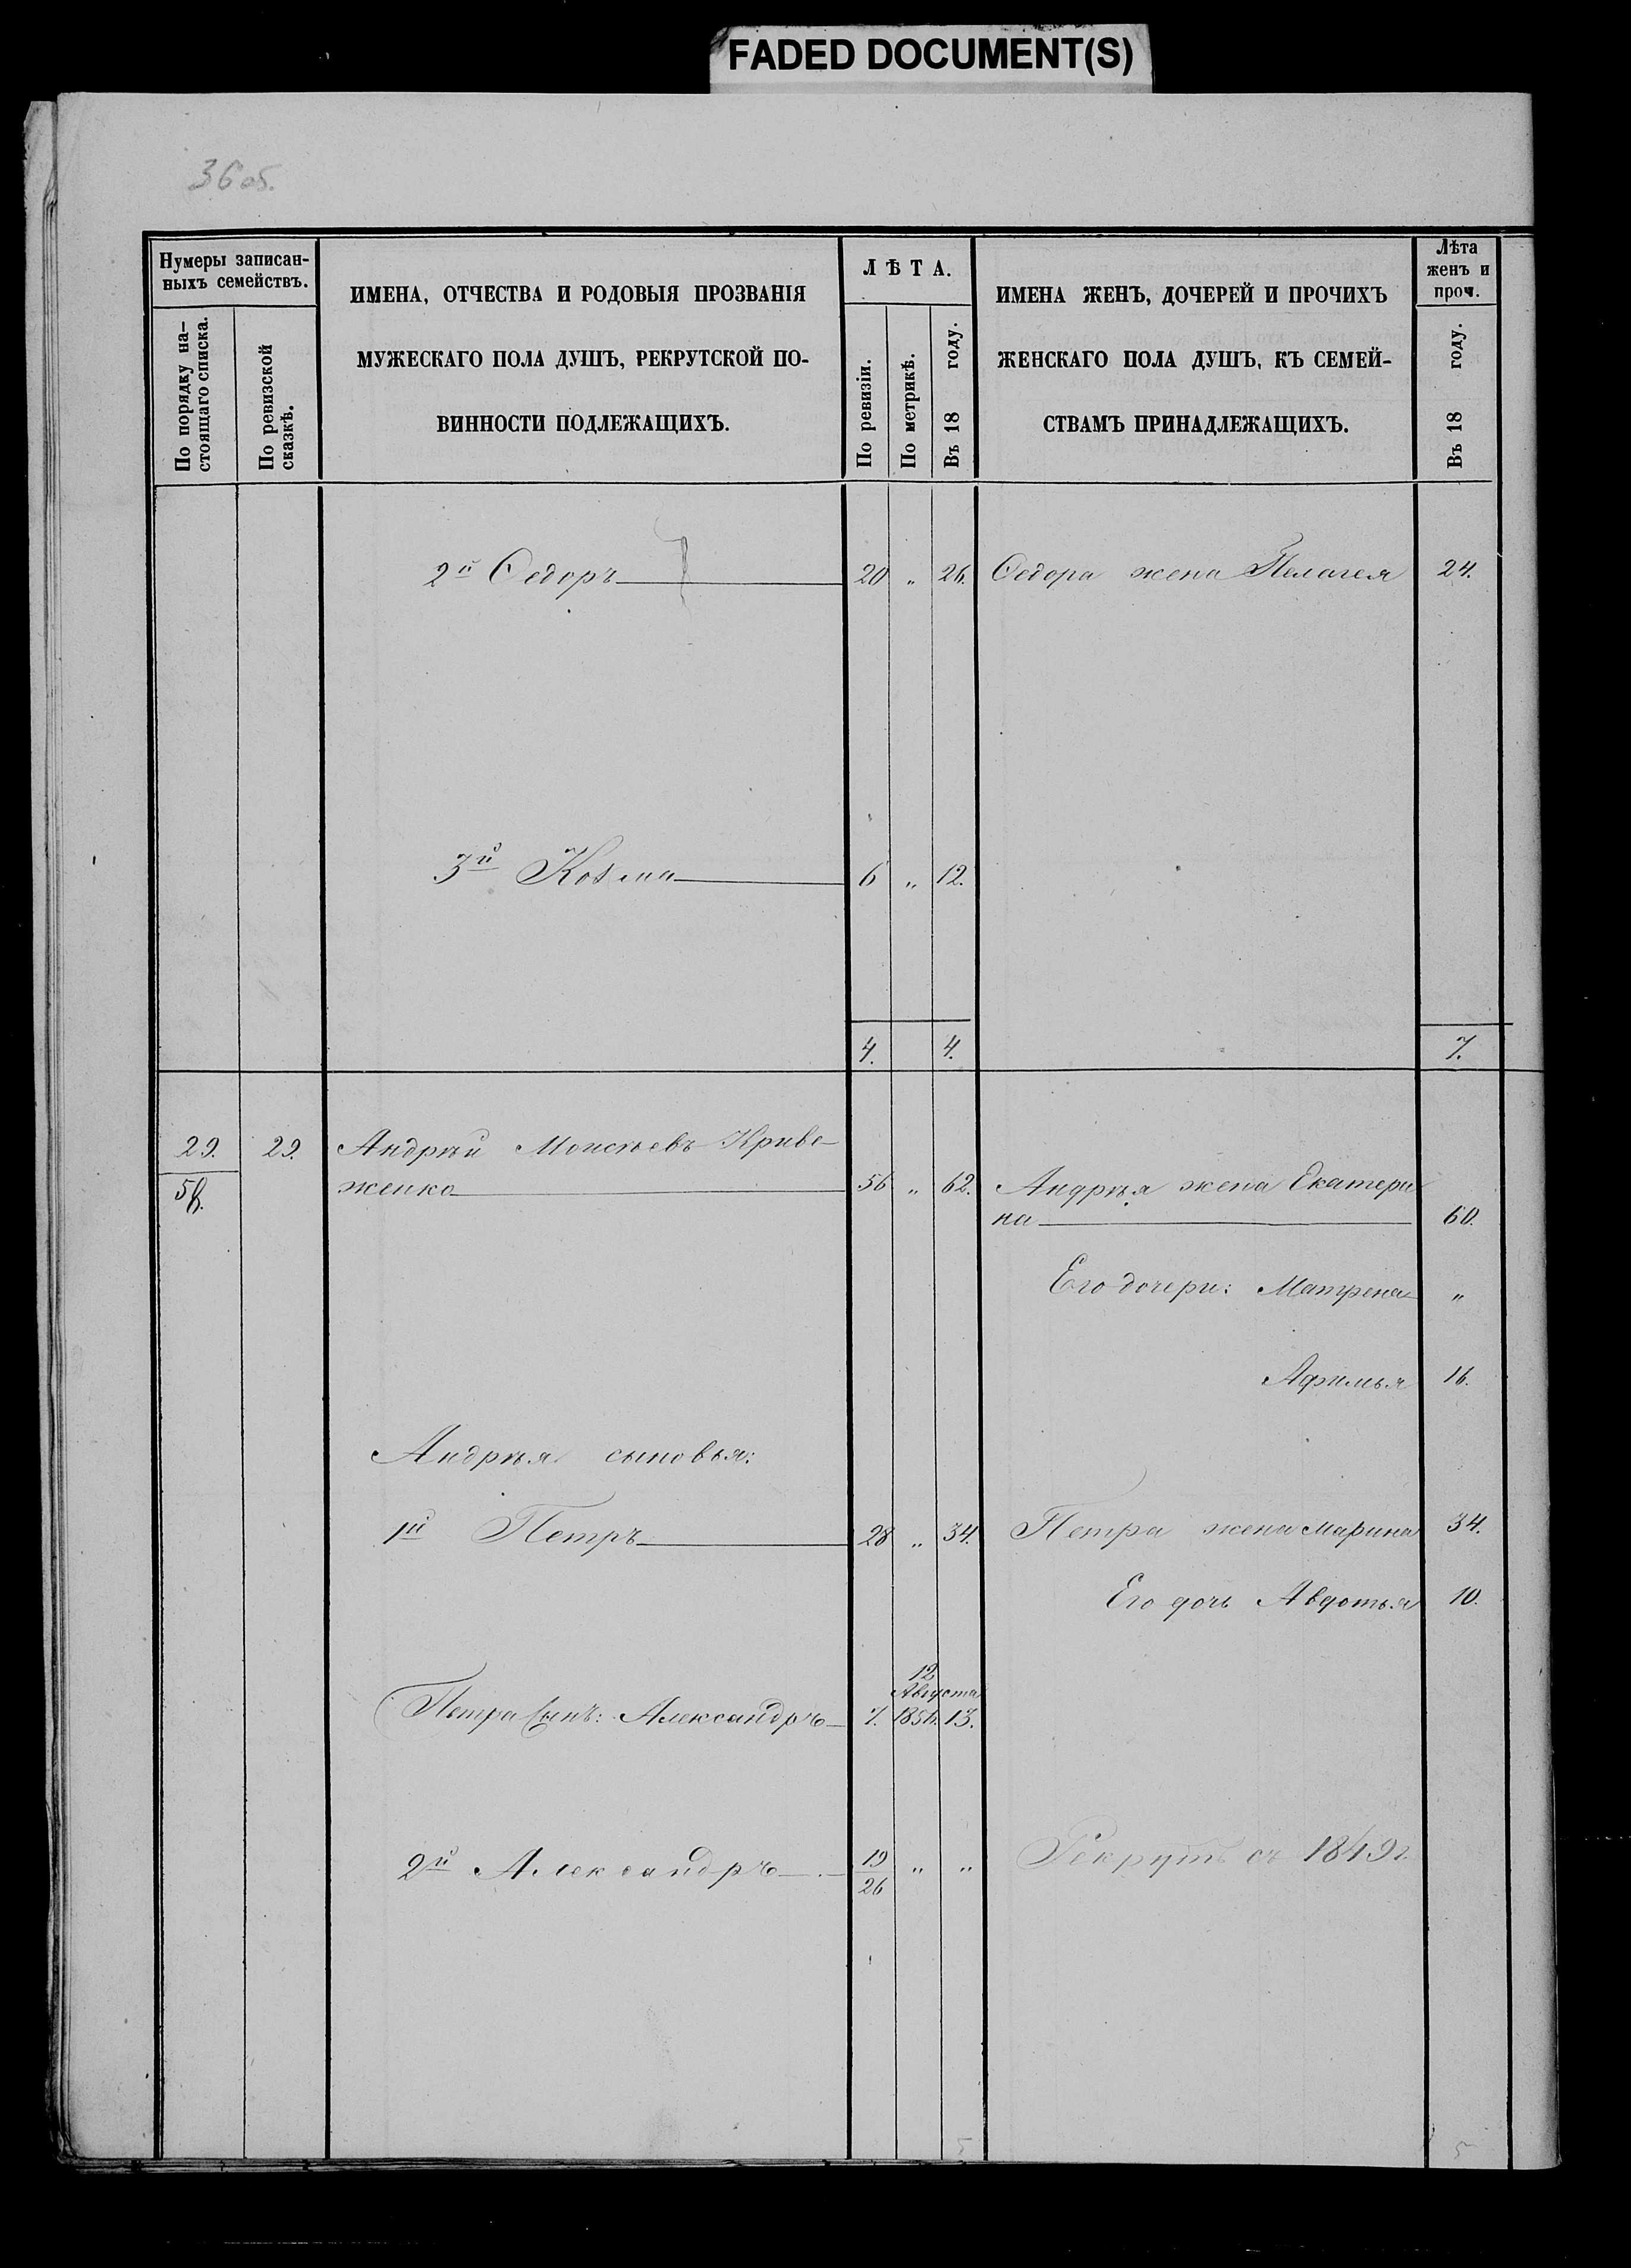 FADED DOCUMENT(S)
36 об.
Нумеры записан-
ныхъ семействъ.
По порядку на-
стоящаго списка.
По ревизской
сказкѣ.
ИМЕНА, ОТЧЕСТВА И РОДОВЫЯ ПРОЗВАНІЯ
МУЖЕСКАГО ПОЛА ДУШЪ, РЕКРУТСКОЙ ПО-
ВИННОСТИ ПОДЛЕЖАЩИХЪ.
ЛѢТА.
По ревизіи.
По метрикѣ.
Въ 18 году.
ИМЕНА ЖЕНЪ, ДОЧЕРЕЙ И ПРОЧИХЪ
ЖЕНСКАГО ПОЛА ДУШЪ, КЪ СЕМЕЙ-
СТВАМЪ ПРИНАДЛЕЖАЩИХЪ.
Лѣта
женъ и
проч.
Въ 18 году.
2й Ѳедоръ 20 „ 26. Ѳедора жена Пелагея 24.
3й Козма 6 „ 12.
4. 4. 7.
29. 29. Андрѣй Моисѣевъ Криве-
58. женко 56 „ 62. Андрѣя жена Екатери
на 60.
Его дочери: Матрена „
Афимья 16.
Андрѣя сыновья:
1й Петръ 28 „ 34. Петра жена Марина 34.
Его дочь Авдотья 10.
12
Августа
Петра сынъ: Александръ 7. 1851. 13.
2й Александръ 19 „ „ Рекрутъ съ 1849 г.
26
5 5